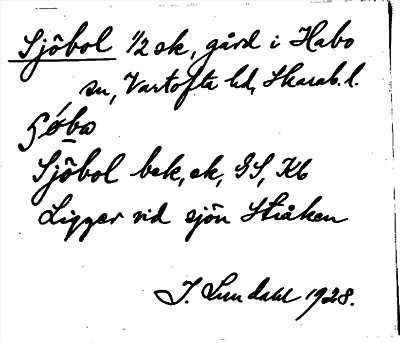 Sjöbol 1/2 sk, gård i Habo
sn, Vartofta hd, Skarab. l.
Sjöbol bek, ek, GS, Kb
Ligger vid sjön Stråken
J. Lundahl 1928.